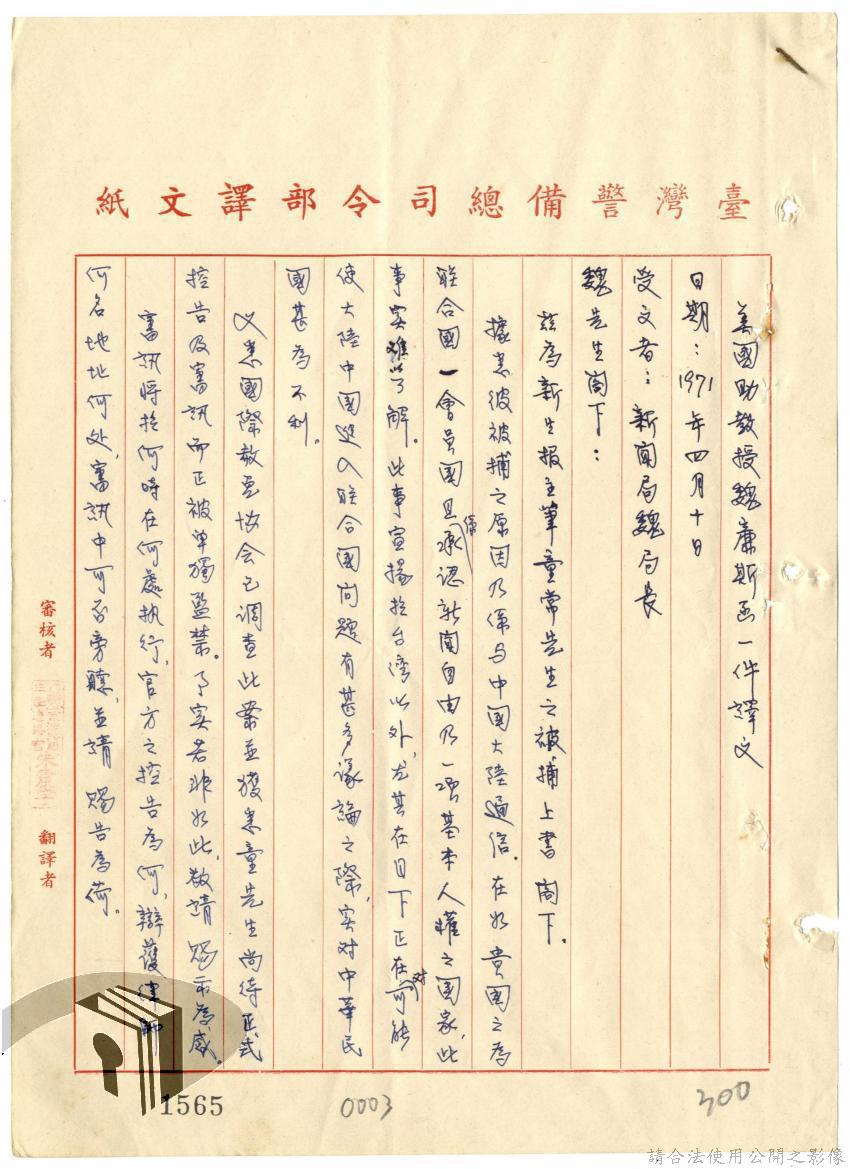 臺灣警備總司令部譯文紙
美國助教授魏廉斯函一件譯文
日期：1971年四月十日
受文者：新聞局魏局長
魏先生閣下：
茲為新生报主筆童常先生之被捕上書 閣下。
據悉彼被捕之原因乃係与中国大陸通信。在如 貴国之為
联合國一會員國且承認新聞自由乃一項基本人權之国家，此
事实难以了解。此事宣揚於台湾以外，尤其在目下正在对可能
使大陸中国進入联合國问题有甚多議論之際，实对中華民
國甚為不利。
又悉國際赦免协会已調查此案並獲悉童先生尚待正式
控告及審訊而正被单獨监禁。事实若非如此，敬請 賜示為感。
審訊将於何時在何處执行，官方之控告為何，辯護律師
何名地址何处，審訊中可否旁聽，並請 賜告為荷。
審核者
翻譯者
1565
0003
300
請合法使用公開之影像